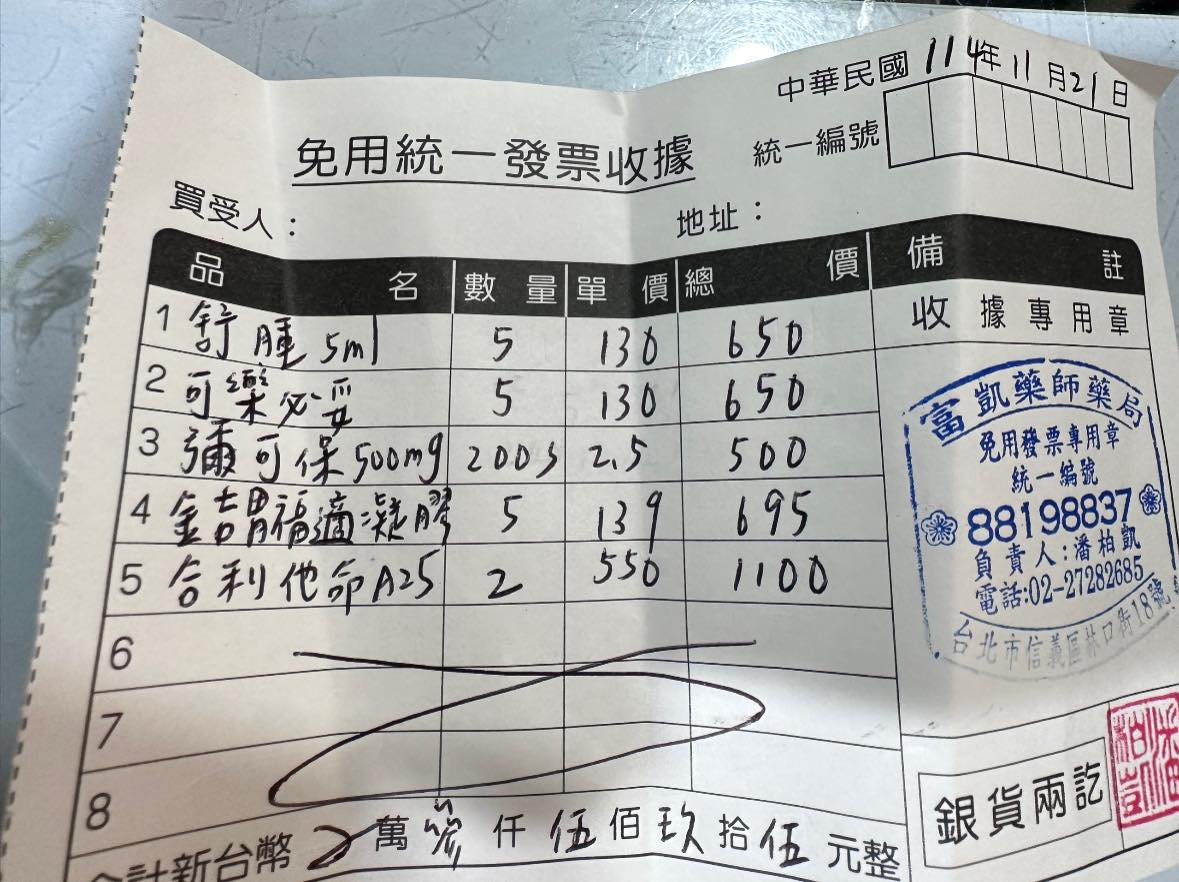 中華民國114年11月21日
免用統一發票收據
統一編號
買受人：
地址：
品名 數量 單價 總價 備註
收據專用章
1 舒腫 5ml 5 130 650
2 可樂必妥 5 130 650
3 彌可保500mg 200s 2.5 500
4 金十字胃福適凝膠 5 139 695
5 合利他命A25 2 550 1100
6
7
8
富凱藥師藥局
免用發票專用章
統一編號
88198837
負責人:潘柏凱
電話:02-27282685
台北市信義區林口街18號
合計新台幣 萬 仟伍佰玖拾伍元整
銀貨兩訖
潘柏凱